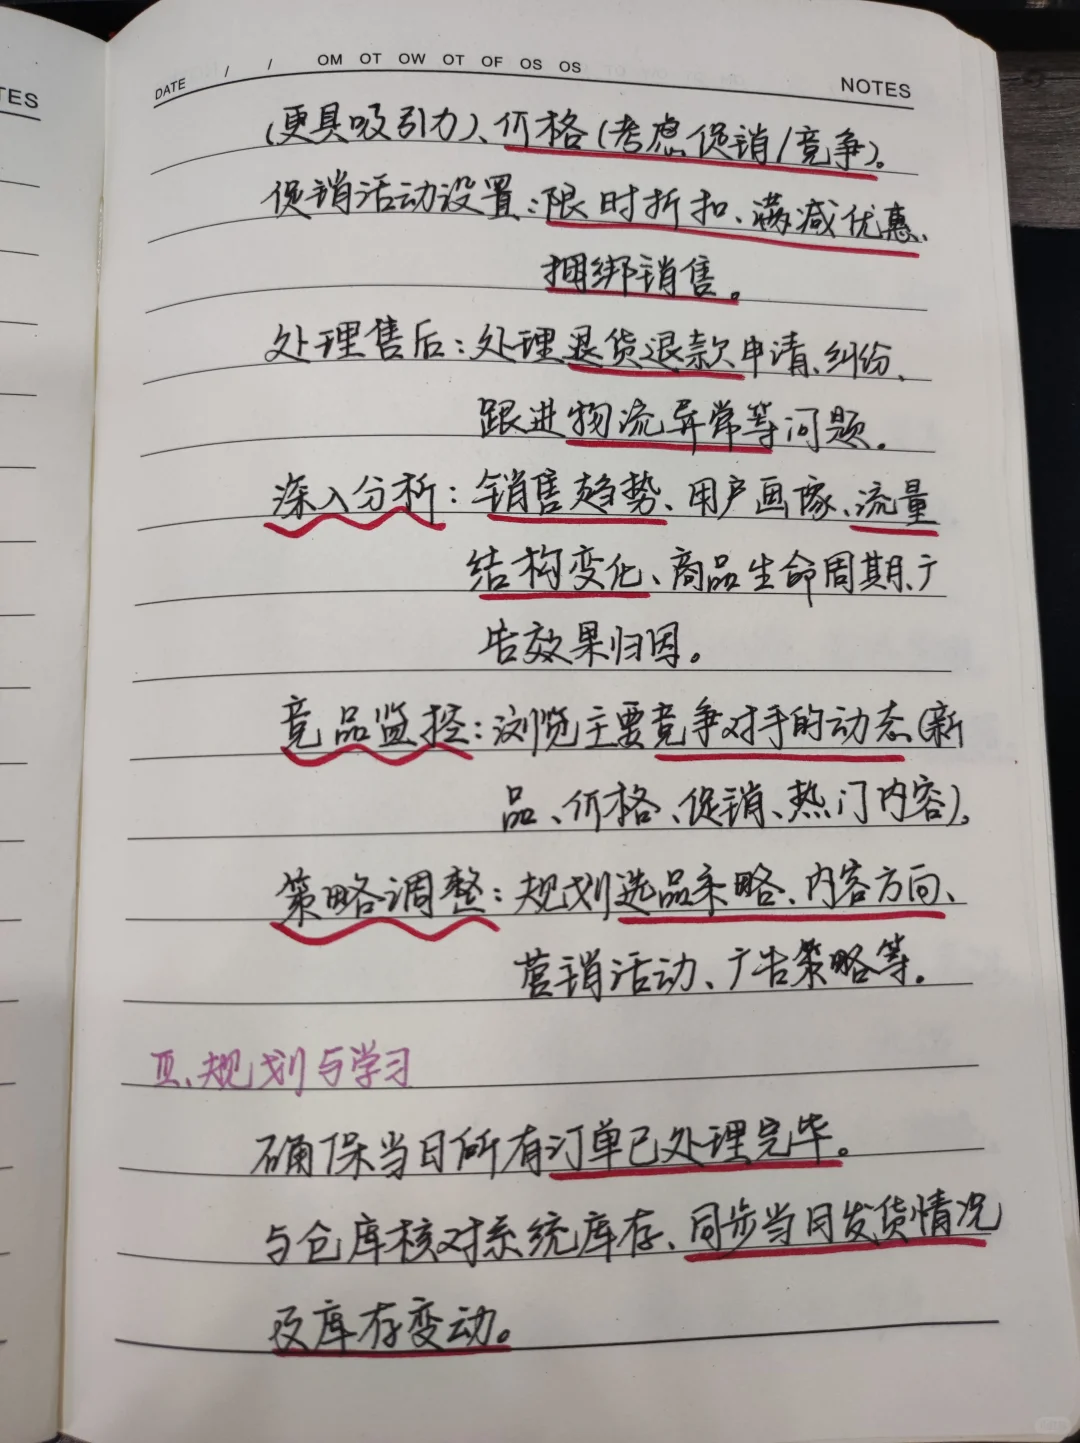 TES
DATE / / OM OT OW OT OF OS OS
NOTES
(更具吸引力)、价格(考虑促销/竞争)。
促销活动设置:限时折扣、满减优惠、
捆绑销售。
处理售后:处理退货退款申请、纠纷、
跟进物流异常等问题。
深入分析:销售趋势、用户画像、流量
结构变化、商品生命周期、广
告效果归因。
竞品监控:浏览主要竞争对手的动态(新
品、价格、促销、热门内容)。
策略调整:规划选品策略、内容方向、
营销活动、广告策略等。
Ⅲ、规划与学习
确保当日所有订单已处理完毕。
与仓库核对系统库存、同步当日发货情况
及库存变动。